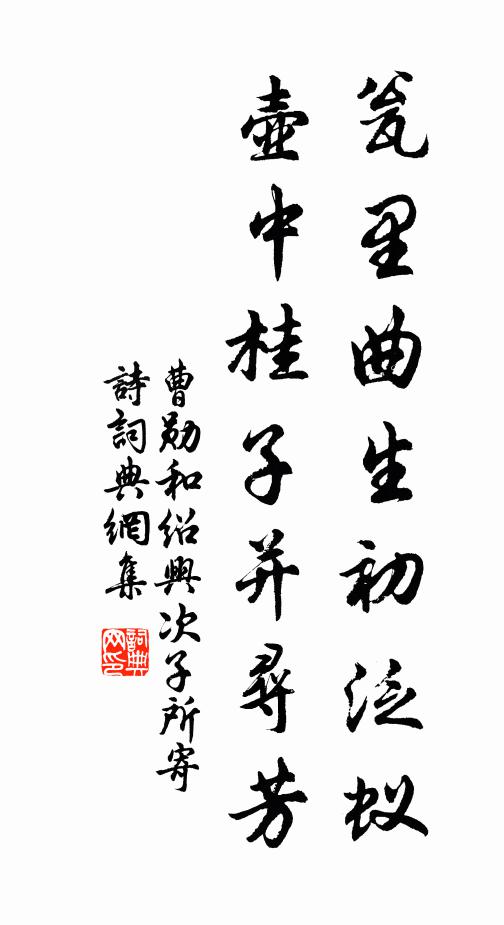 瓮里曲生初泛蚁
壶中桂子并寻芳
曹勋和绍兴次子所寄
詩詞典網集
詞典网印